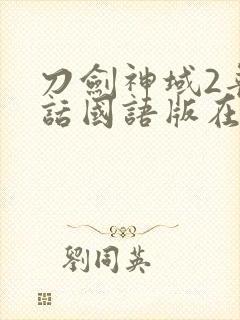 刀劍神域2
話國語版在
劉同英